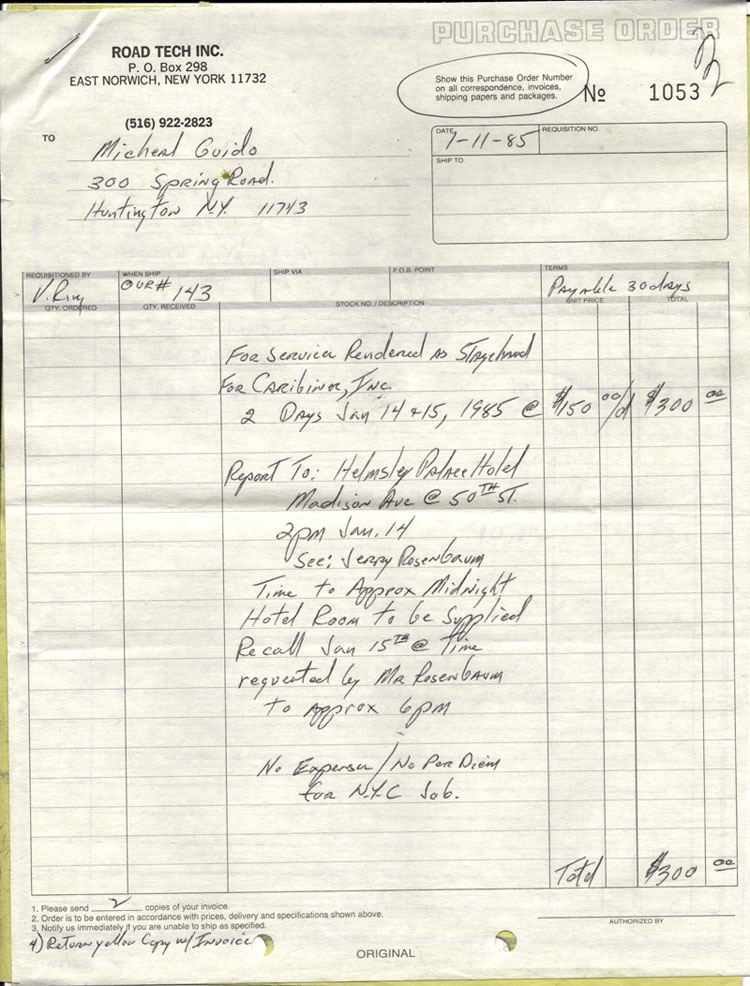 PURCHASE ORDER
ROAD TECH INC.
P. O. Box 298
EAST NORWICH, NEW YORK 11732
(516) 922-2823
Show this Purchase Order Number
on all correspondence, invoices,
shipping papers and packages.
No 1053
TO
Micheal Guido
300 Spring Road.
Huntington N.Y. 11743
DATE 1-11-85
REQUISITION NO.
SHIP TO
REQUISITIONED BY WHEN SHIP SHIP VIA F.O.B. POINT TERMS
V. OUR# 143 Payable 30 days
QTY. ORDERED QTY. RECEIVED STOCK NO. / DESCRIPTION UNIT PRICE TOTAL
For Service Rendered as Stagehand
For Caribiner, Inc.
2 Days Jan 14 + 15, 1985 @ $150 00/d $300 00
Report To: Helmsley Palace Hotel
Madison Ave @ 50TH ST.
2pm Jan. 14
See: Jerry Rosenbaum
Time to Approx Midnight
Hotel Room to be Supplied
Recall Jan 15TH @ Time
requested by Mr Rosenbaum
to Approx 6pm
No Expenses / No Per Diem
for N.Y.C Job.
Total $300 00
1. Please send 2 copies of your invoice.
2. Order is to be entered in accordance with prices, delivery and specifications shown above.
3. Notify us immediately if you are unable to ship as specified.
4) Return yellow Copy w/ Invoice
AUTHORIZED BY
ORIGINAL